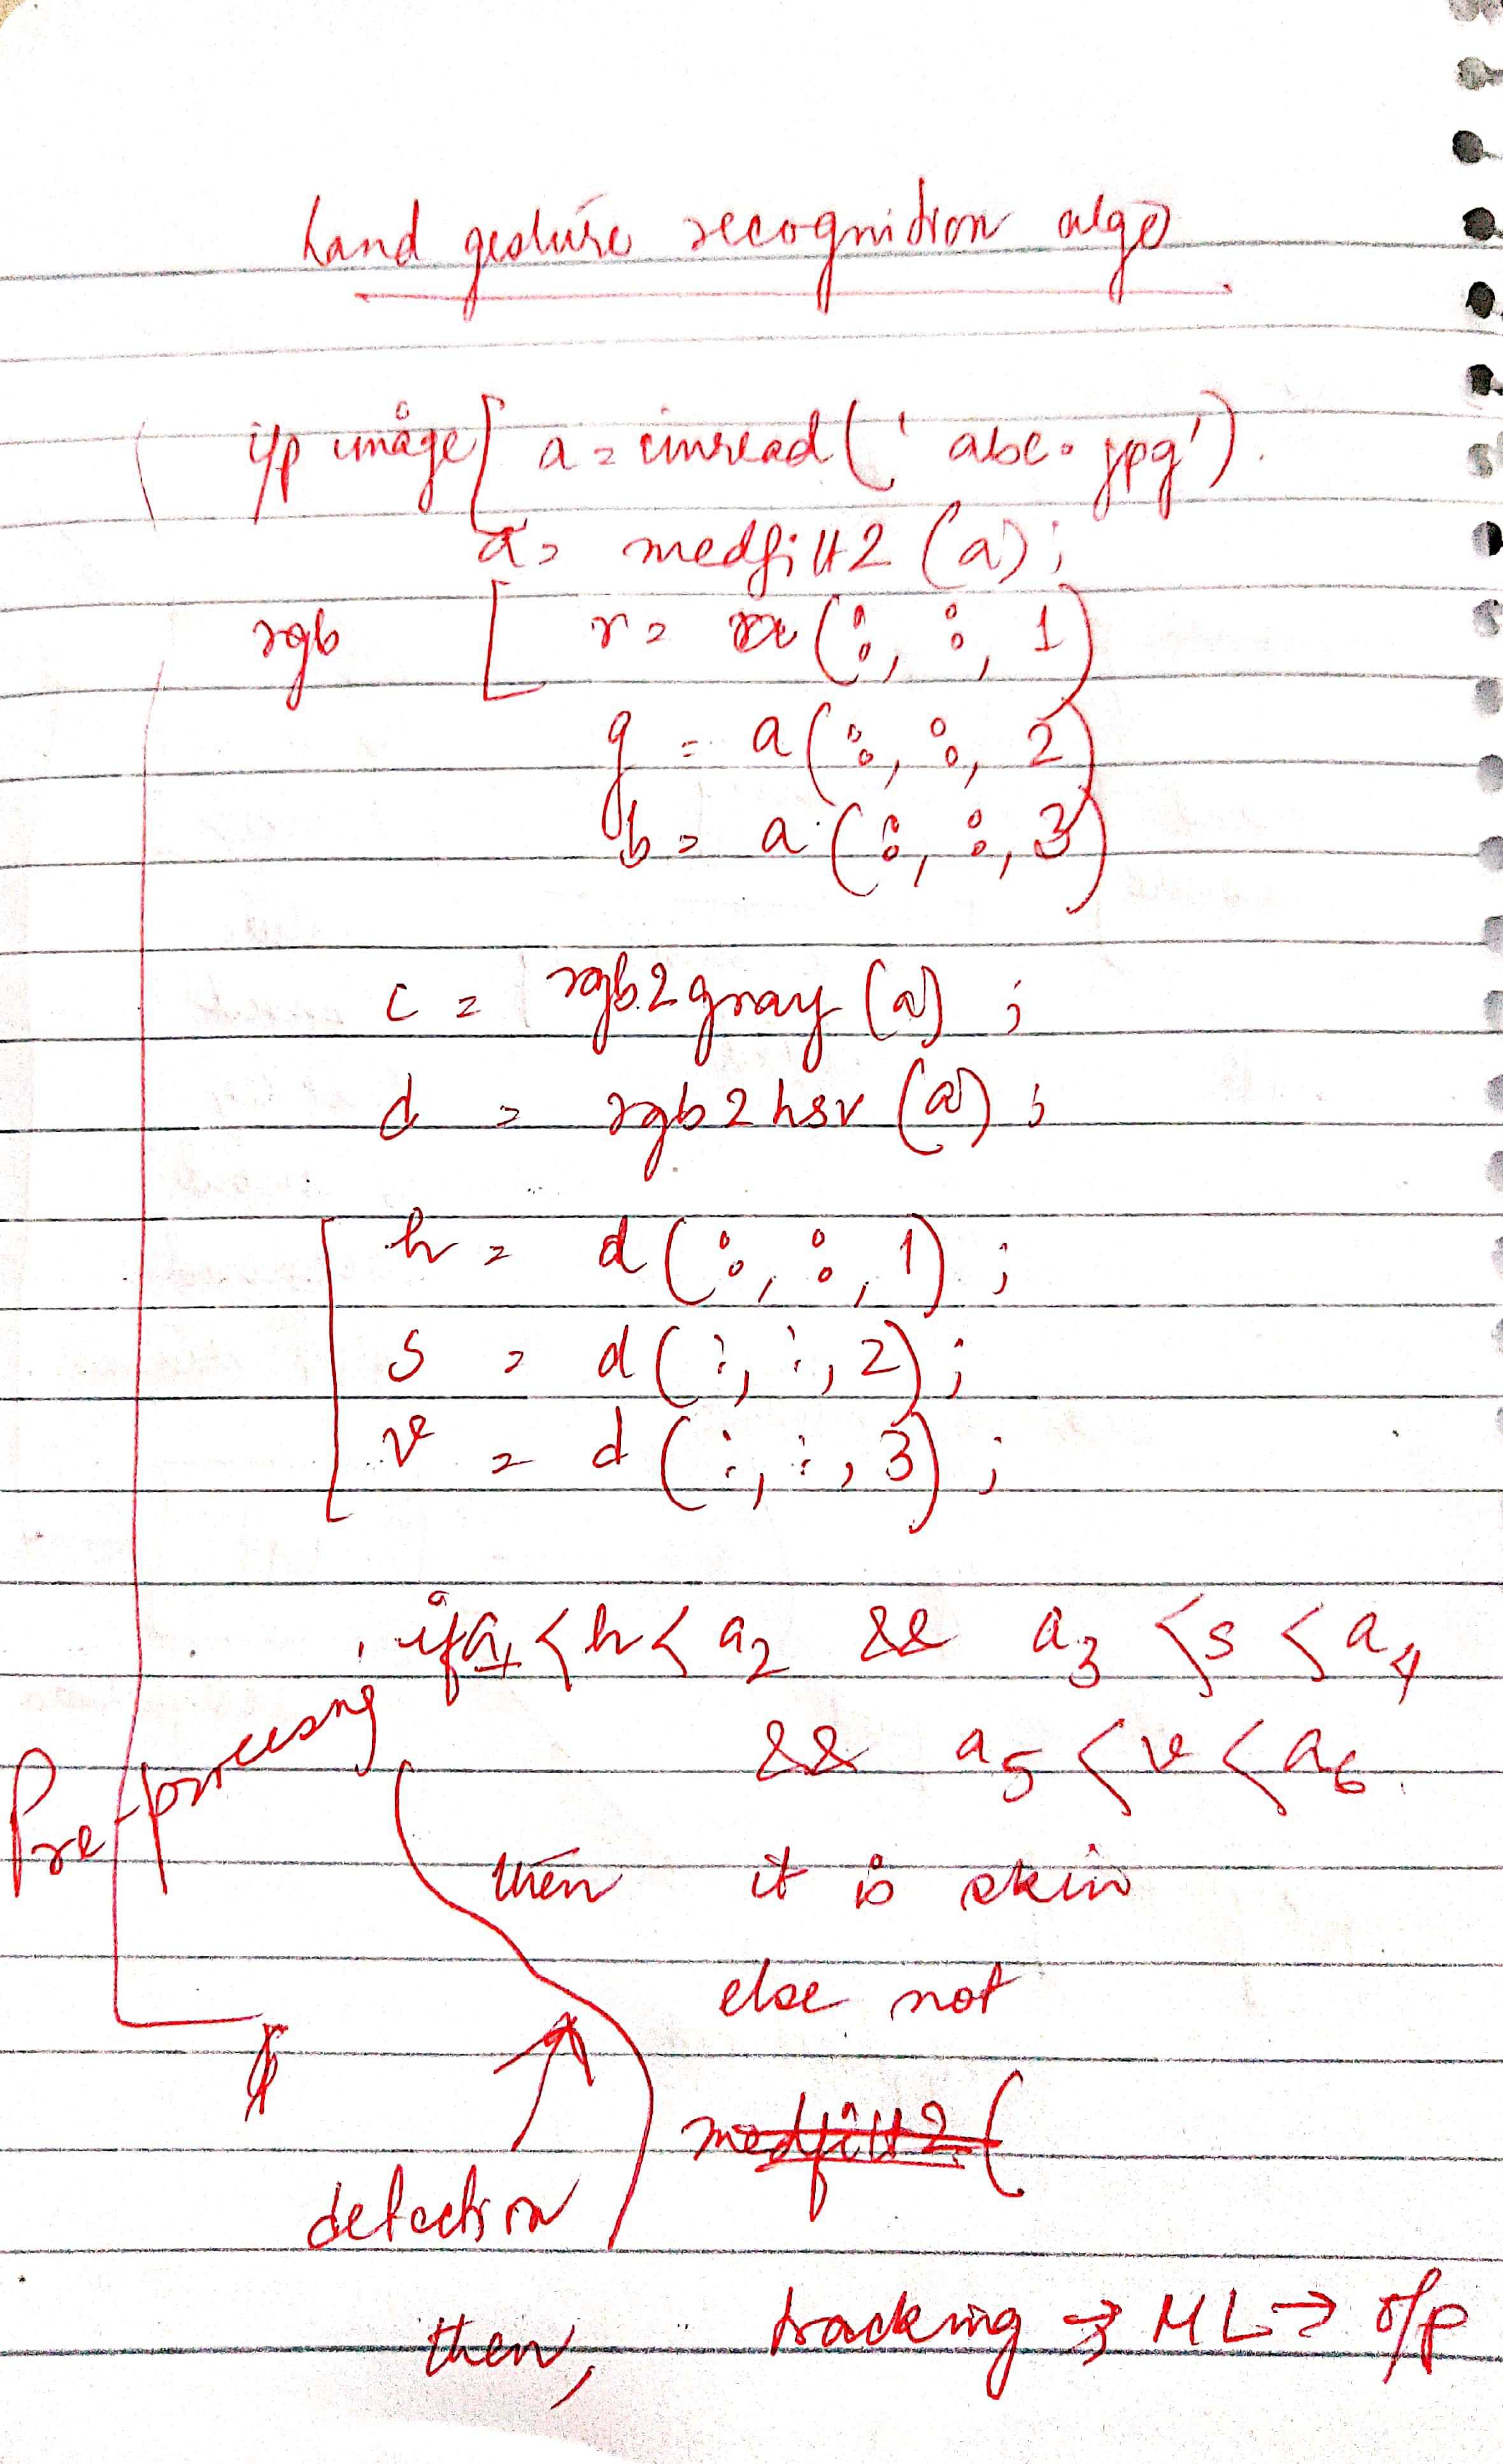 hand gesture recognition algo
i/p image [ a = imread ( ' abc.jpg' ).
a = medfilt2 (a) ;
rgb [ r = (:, :, 1)
g = a (:, :, 2)
b = a (:, :, 3)
c = rgb2gray (a) ;
d = rgb2hsv (a) ;
h = d (:, :, 1) ;
s = d (:, :, 2) ;
v = d (:, :, 3) ;
if a1 < h < a2 && a3 < s < a4
&& a5 < v < a6.
Pre-processing
then it is skin
else not
medfilt2 (
detection
then, tracking → ML → o/p